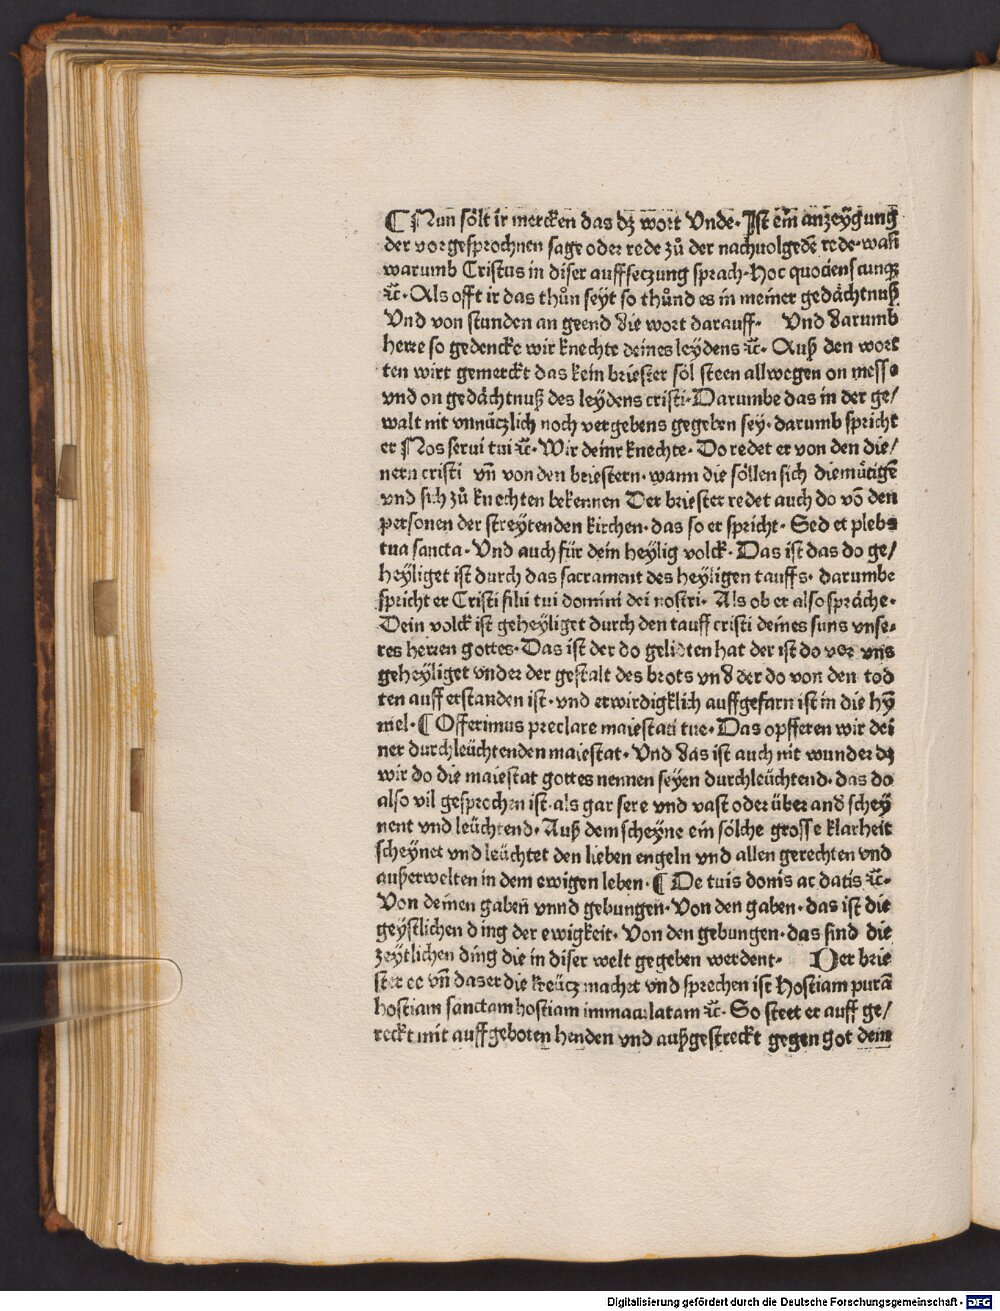 ¶ Nun sőlt ir mercken das dz wort Vnde· Jst ein̄ anzeӱgung
der vorgesprochnen sage oder rede zů der nachuolgedē rede·wañ
warumb Cristus in diser auffseczung sprach·Hoc quociens cunqꝫ
ꝛc̄·Als offt ir das thůn seyt so thůnd es in meiner gedächtnuß
Vnd von stunden an geend die wort darauff· Vnd darumb
herre so gedencke wir knechte deines leydens ꝛc̄· Auß den wort
ten wirt gemerckt das kein briester sol steen allwegen on messe
vnd on gedächtnuß des leydens cristi·Darumbe das in der ge/
walt nit vnnüczlich noch vergebens gegeben sey·darumb spricht
er Nos serui tui ꝛc̄·Wir deinr knechte·Do redet er von den die/
nern cristi vn̄ von den briestern·wann die söllen sich diemütigē
vnd sich zů knechten bekennen Der briester redet auch do vō den
personen der streӱtenden kirchen·das so er spricht· Sed et plebs
tua sancta·Vnd auch für dein heӱlig volck·Das ist das do ge/
heӱliget ist durch das sacrament des heӱligen tauffs· darumbe
spricht er Cristi filii tui domini dei nostri· Als ob er also spräche·
Dein volck ist geheӱliget durch den tauff cristi deines suns vnse-
res herren gottes·Das ist der do gelidten hat der ist do vor vns
geheӱliget vnder der gestalt des brots vnd der do von den tod
ten aufferstanden ist·vnd erwirdigklich auffgefarn ist in die hӱ
mel·¶ Offerimus preclare maiestati tue·Das opfferen wir dei
ner durchleüchtenden maiestat·Vnd das ist auch nit wunder dz
wir do die maiestat gottes nennen seyen durchleüchtend·das do
also vil gesprochen ist·als gar sere vnd vast oder über and scheӱ
nent vnd leüchtend·Auß dem scheӱne ein sölche grosse klarheit
scheӱnet vnd leüchtet den lieben engeln vnd allen gerechten vnd
außerwelten in dem ewigen leben·¶ De tuis donis ac datis ꝛc̄·
Von deinen gaben̄ vnnd gebungen·Von den gaben·das ist die
geӱstlichen ding der ewigkeit·Von den gebungen·das sind die
zeӱtlichen ding die in diser welt gegeben werdent· Der brie
ster ee vn̄ das er die kreücz machet vnd sprechen ist Hostiam purā
hostiam sanctam hostiam immaculatam ꝛc̄·So steet er auff ge/
reckt mit auffgeboten henden vnd außgestreckt gegen got dem
Digitalisierung gefördert durch die Deutsche Forschungsgemeinschaft - DFG